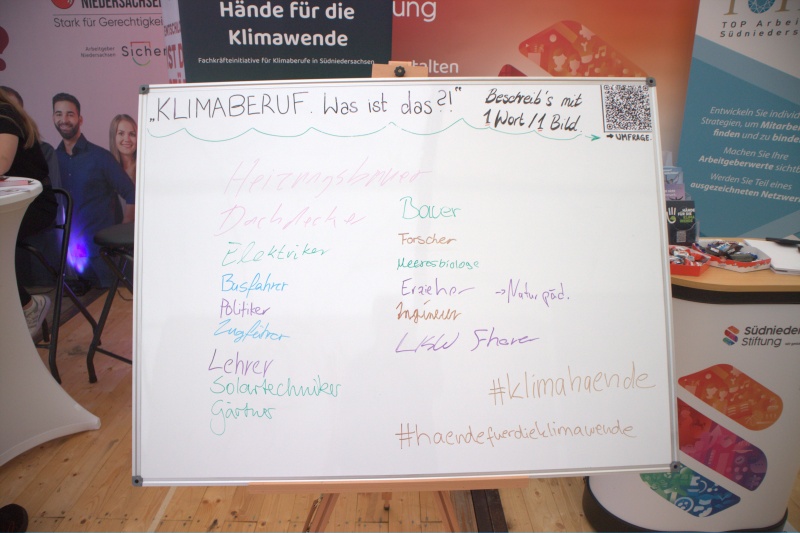 NIEDERSACHSEN
Stark für Gerechtigkei
Arbeitgeber
Niedersachsen
Sicher
Hände für die
Klimawende
Fachkräfteinitiative für Klimaberufe in Südniedersachsen
ung
alten
TOP Arbei
Südnieders
Entwickeln Sie individ
Strategien, um Mitarb
finden und zu binde
Machen Sie Ihre
Arbeitgeberwerte sicht
Werden Sie Teil eines
ausgezeichneten Netzwer
„KLIMABERUF. Was ist das?!"
Beschreib's mit
1 Wort / 1 Bild.
→ UMFRAGE.
Heizungsbauer
Dachdecker
Elektriker
Busfahrer
Politiker
Zugführer
Lehrer
Solartechniker
Gärtner
Bauer
Forscher
Meeresbiologe
Erzieher → Naturpäd.
Ingineur
LKW
#klimahaende
#haendefuerdieklimawende
Südnieder
Stiftung